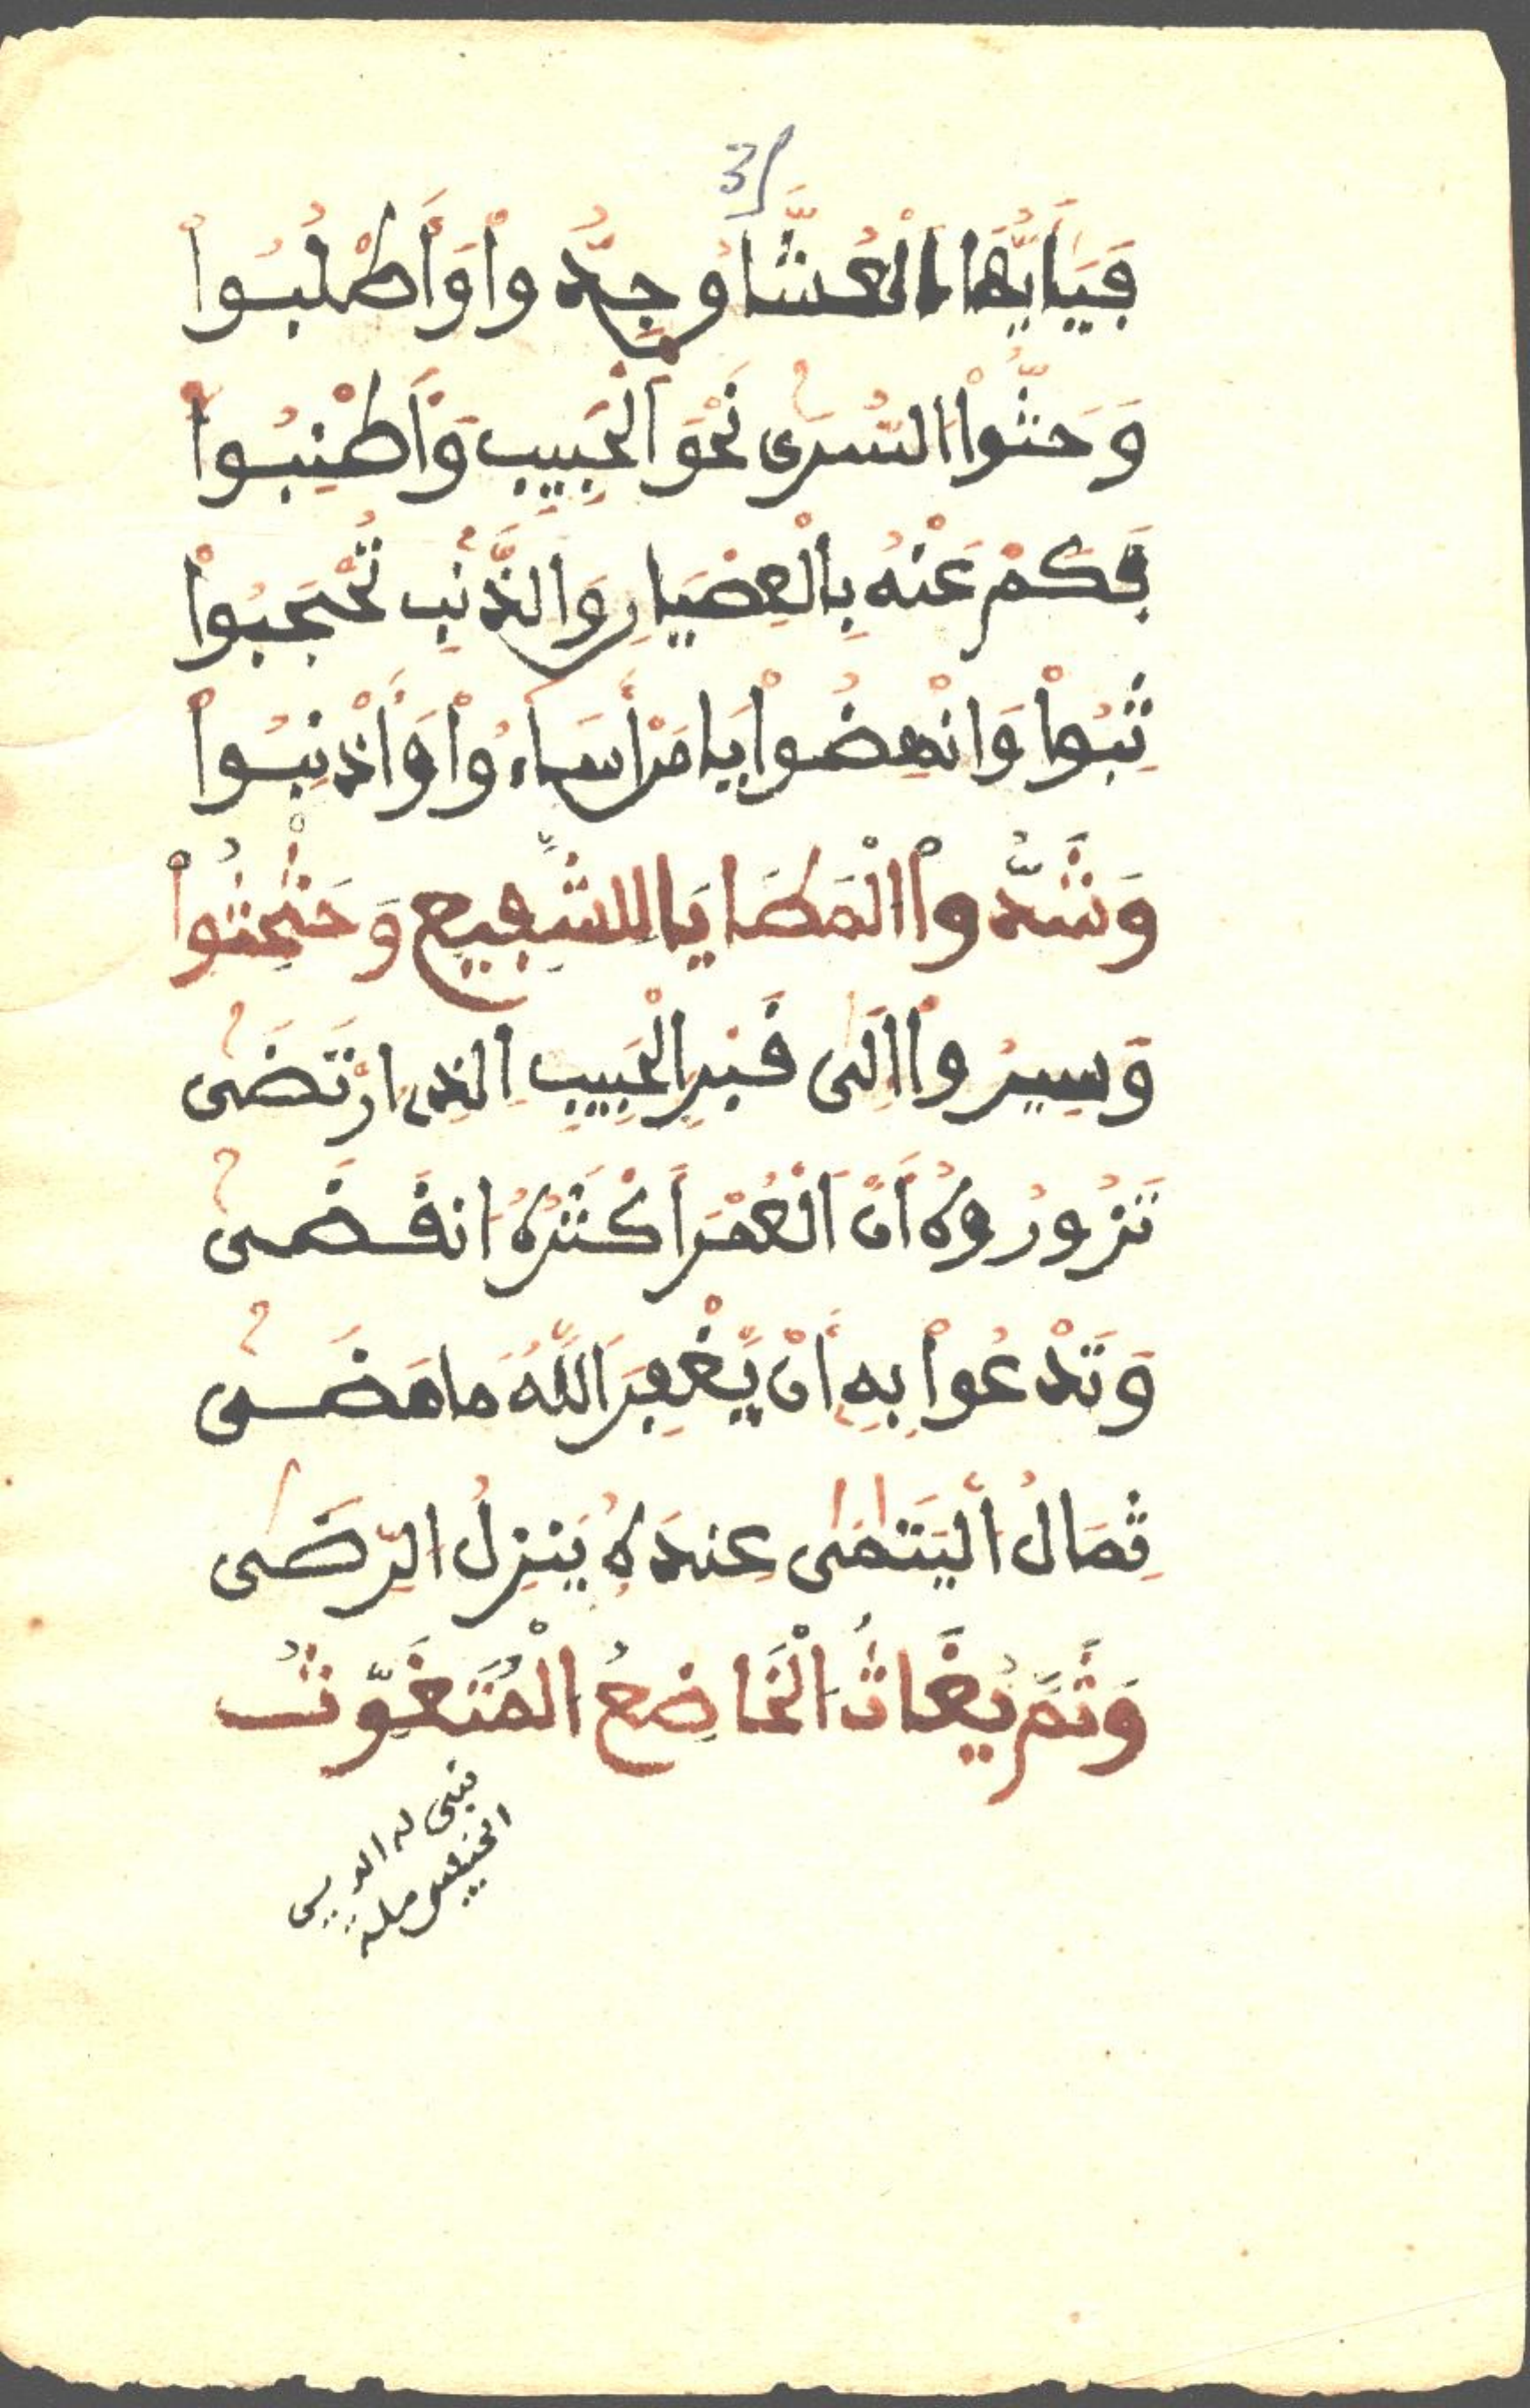 31
فَيَا أَيُّهَا الْعُشَّاقُ جِدُّواْ وَأَطْلُبُواْ
وَحُثُّواْ السُّرَى نَحْوَ الْحَبِيبِ وَأَطْنِبُواْ
فَكَمْ عَنْهُ بِالْعِصْيَانِ وَالذَّنْبِ تُحْجَبُواْ
ثِبُواْ وَانْهِضُواْ يَا مَنْ أَسَاءُواْ وَأَذْنِبُواْ
وَشُدُّواْ الْمَطَايَا لِلشَّفِيعِ وَحَثْحِثُواْ
وَسِيرُواْ إِلَى قَبْرِ الْحَبِيبِ الذِى ارْتَضَى
تَزُورُوهُ أَنَّ الْعُمْرَ أَكْثَرُهُ انقَضَى
وَتَدْعُواْ بِهِ أَنْ يَّغْفِرَ اللَّهُ مَا مَضَى
ثِمَالُ الْيَتَامَى عِندَهُ يَنزِلُ الرِّضَى
وَثَمَّ يُغَاثُ الْخَاضِعُ الْمُتَغَوِّثُ